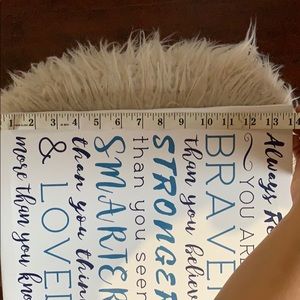 2 3 4 5 6 7 8 9 10 11 12 13 14
Always Re
YOU ARE
BRAVE
than you believe
STRONGER
than you seem
SMARTER
than you thin
& LOVE
more than you kno